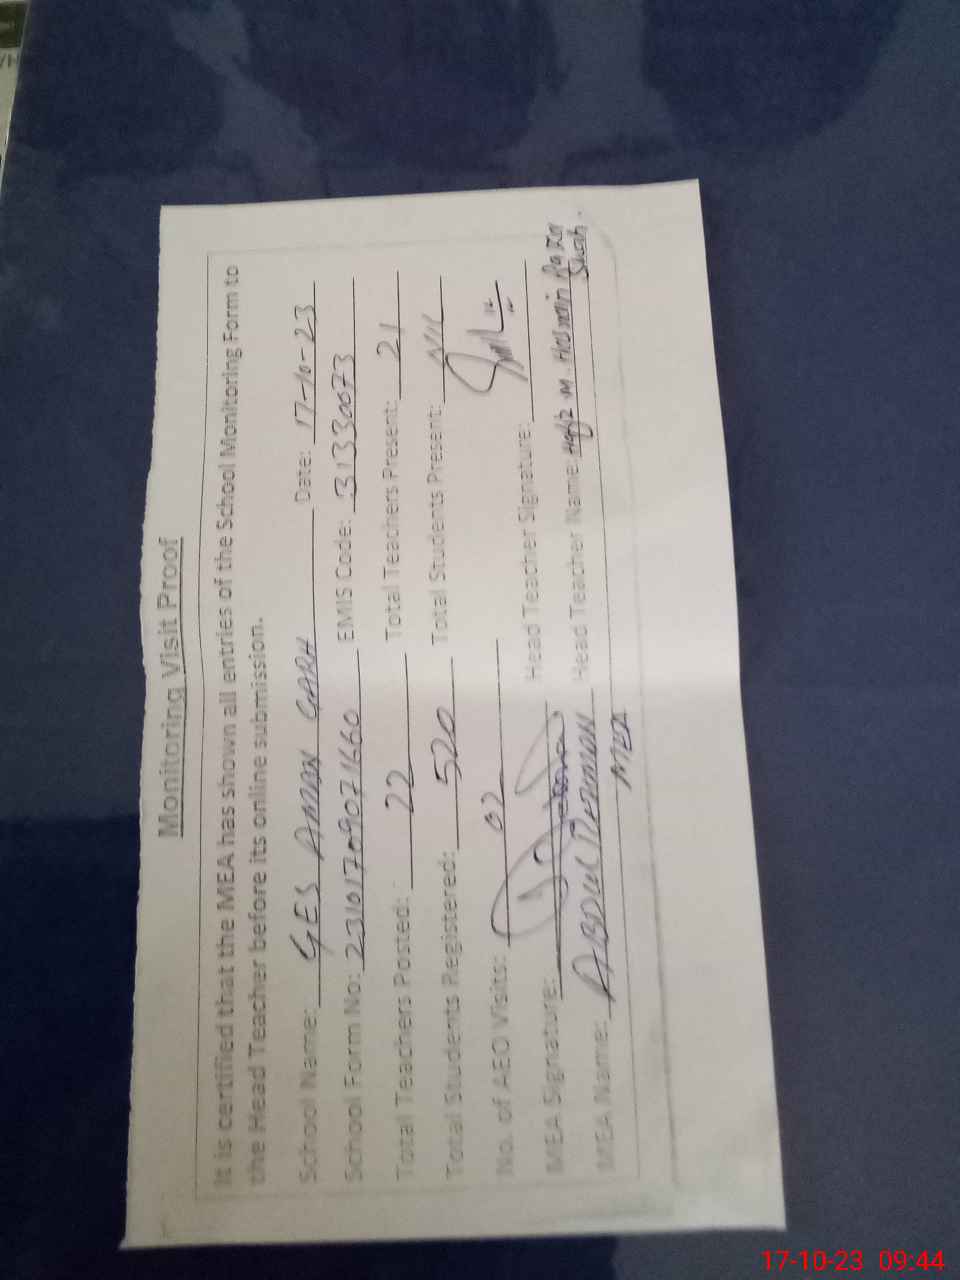 Monitoring Visit Proof
It is certified that the MEA has shown all entries of the School Monitoring Form to
the Head Teacher before its online submission.
School Name: GES AMAN GARH Date: 17-10-23
School Form No: 23101709071660 EMIS Code: 31330073
Total Teachers Posted: 22 Total Teachers Present: 21
Total Students Registered: 520 Total Students Present: NIL
No. of AEO Visits: 02
MEA Signature: Head Teacher Signature:
MEA Name: ABDUL REHMAN Head Teacher Name: Hafiz M. Hasnain Raza
MEA Shah.
17-10-23 09:44